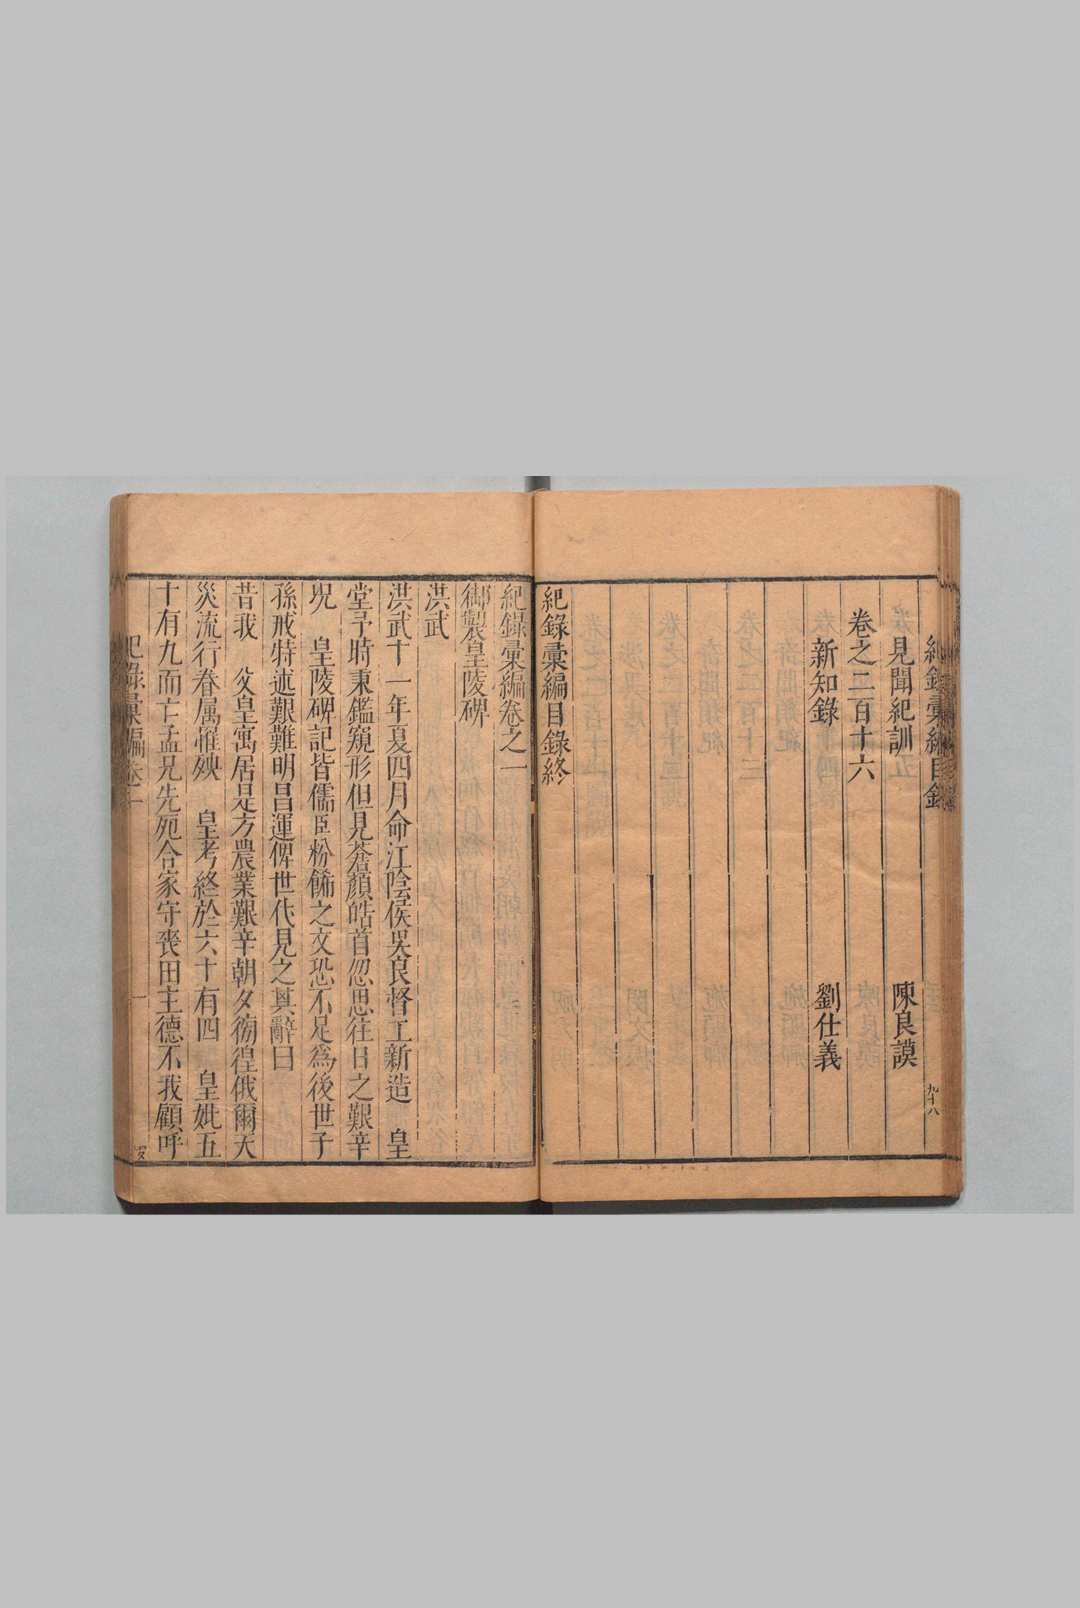 紀錄彙編目錄
九十八
見聞紀訓 陳良謨
卷之二百十六
新知錄 劉仕義
紀錄彙編目錄終
紀錄彙編卷之一
御製皇陵碑
洪武
洪武十一年夏四月命江陰侯吳良督工新造 皇
堂予時秉鑑窺形但見蒼顏皓首忽思往日之艱辛
況 皇陵碑記皆儒臣粉餙之文恐不足爲後世子
孫戒特述艱難明昌運俾世代見之其辭曰
昔我 父皇寓居是方農業艱辛朝夕徬徨俄爾天
災流行眷属罹殃 皇考終於六十有四 皇妣五
十有九而亡孟兄先死合家守喪田主德不我顧呼
紀錄彙編卷一
一